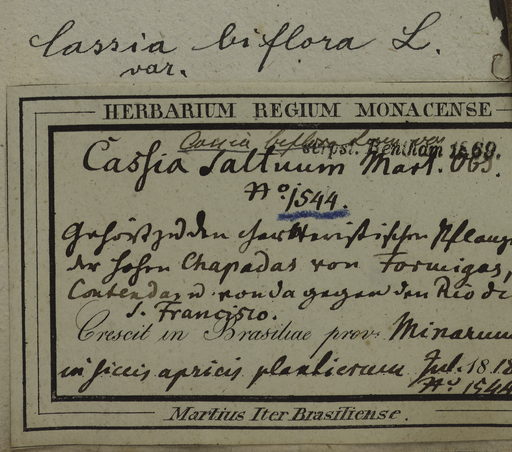 Cassia biflora L.
var.
HERBARIUM REGIUM MONACENSE
Cassia biflora
scrpst. Bentham 1869.
Cassia saltuum Mart. Obs.
No. 1544.
Gehört zu den charkteristischen Pflanz
der hohen Chapadas von Formigas,
Contendas u. von da gegen den Rio de
S. Francisco.
Crescit in Brasiliae prov. Minarum
in siccis apricis Jul. 18.18
No. 1544
Martius Iter Brasiliense.